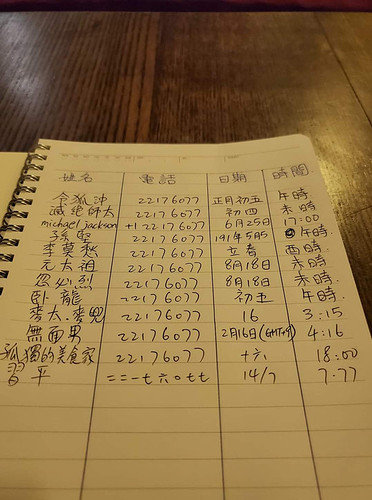 姓名 電話 日期 時間
令狐冲 22176077 正月初五 午時
滅絕師太 22176077 初四 未時
michael jackson +1 22176077 6月25日 17:00
孫堅 22176077 191年5月5 午時
李莫愁 22176077 立春 酉時
元太祖 22176077 8月18日 未時
忽必烈 22176077 8月18日 未時
臥龍 22176077 初五 午時
麥太.麥兜 22176077 16 3:15
無面男 22176077 2月16日(GMT+9) 4:16
孤獨的美食家 22176077 十六 18:00
習 平 二二一七六〇七七 14/7 7:77